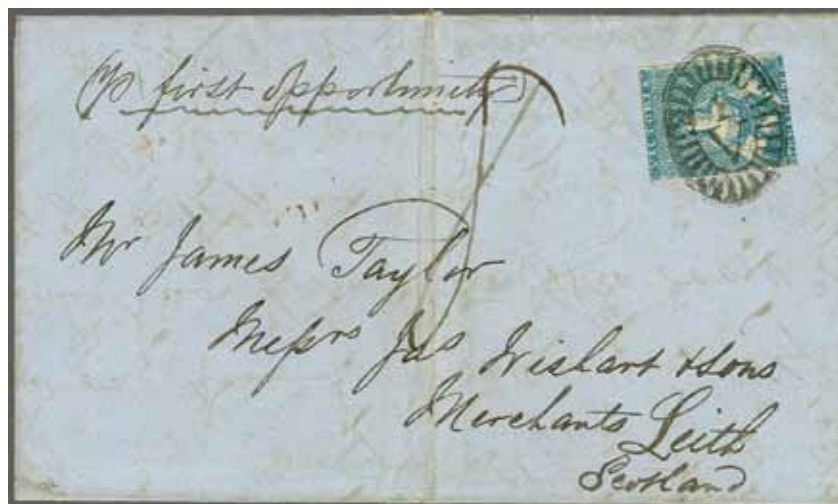 P first opportunity
Mr James Taylor
Messrs Jas Wishart & Sons
Merchants Leith
Scotland